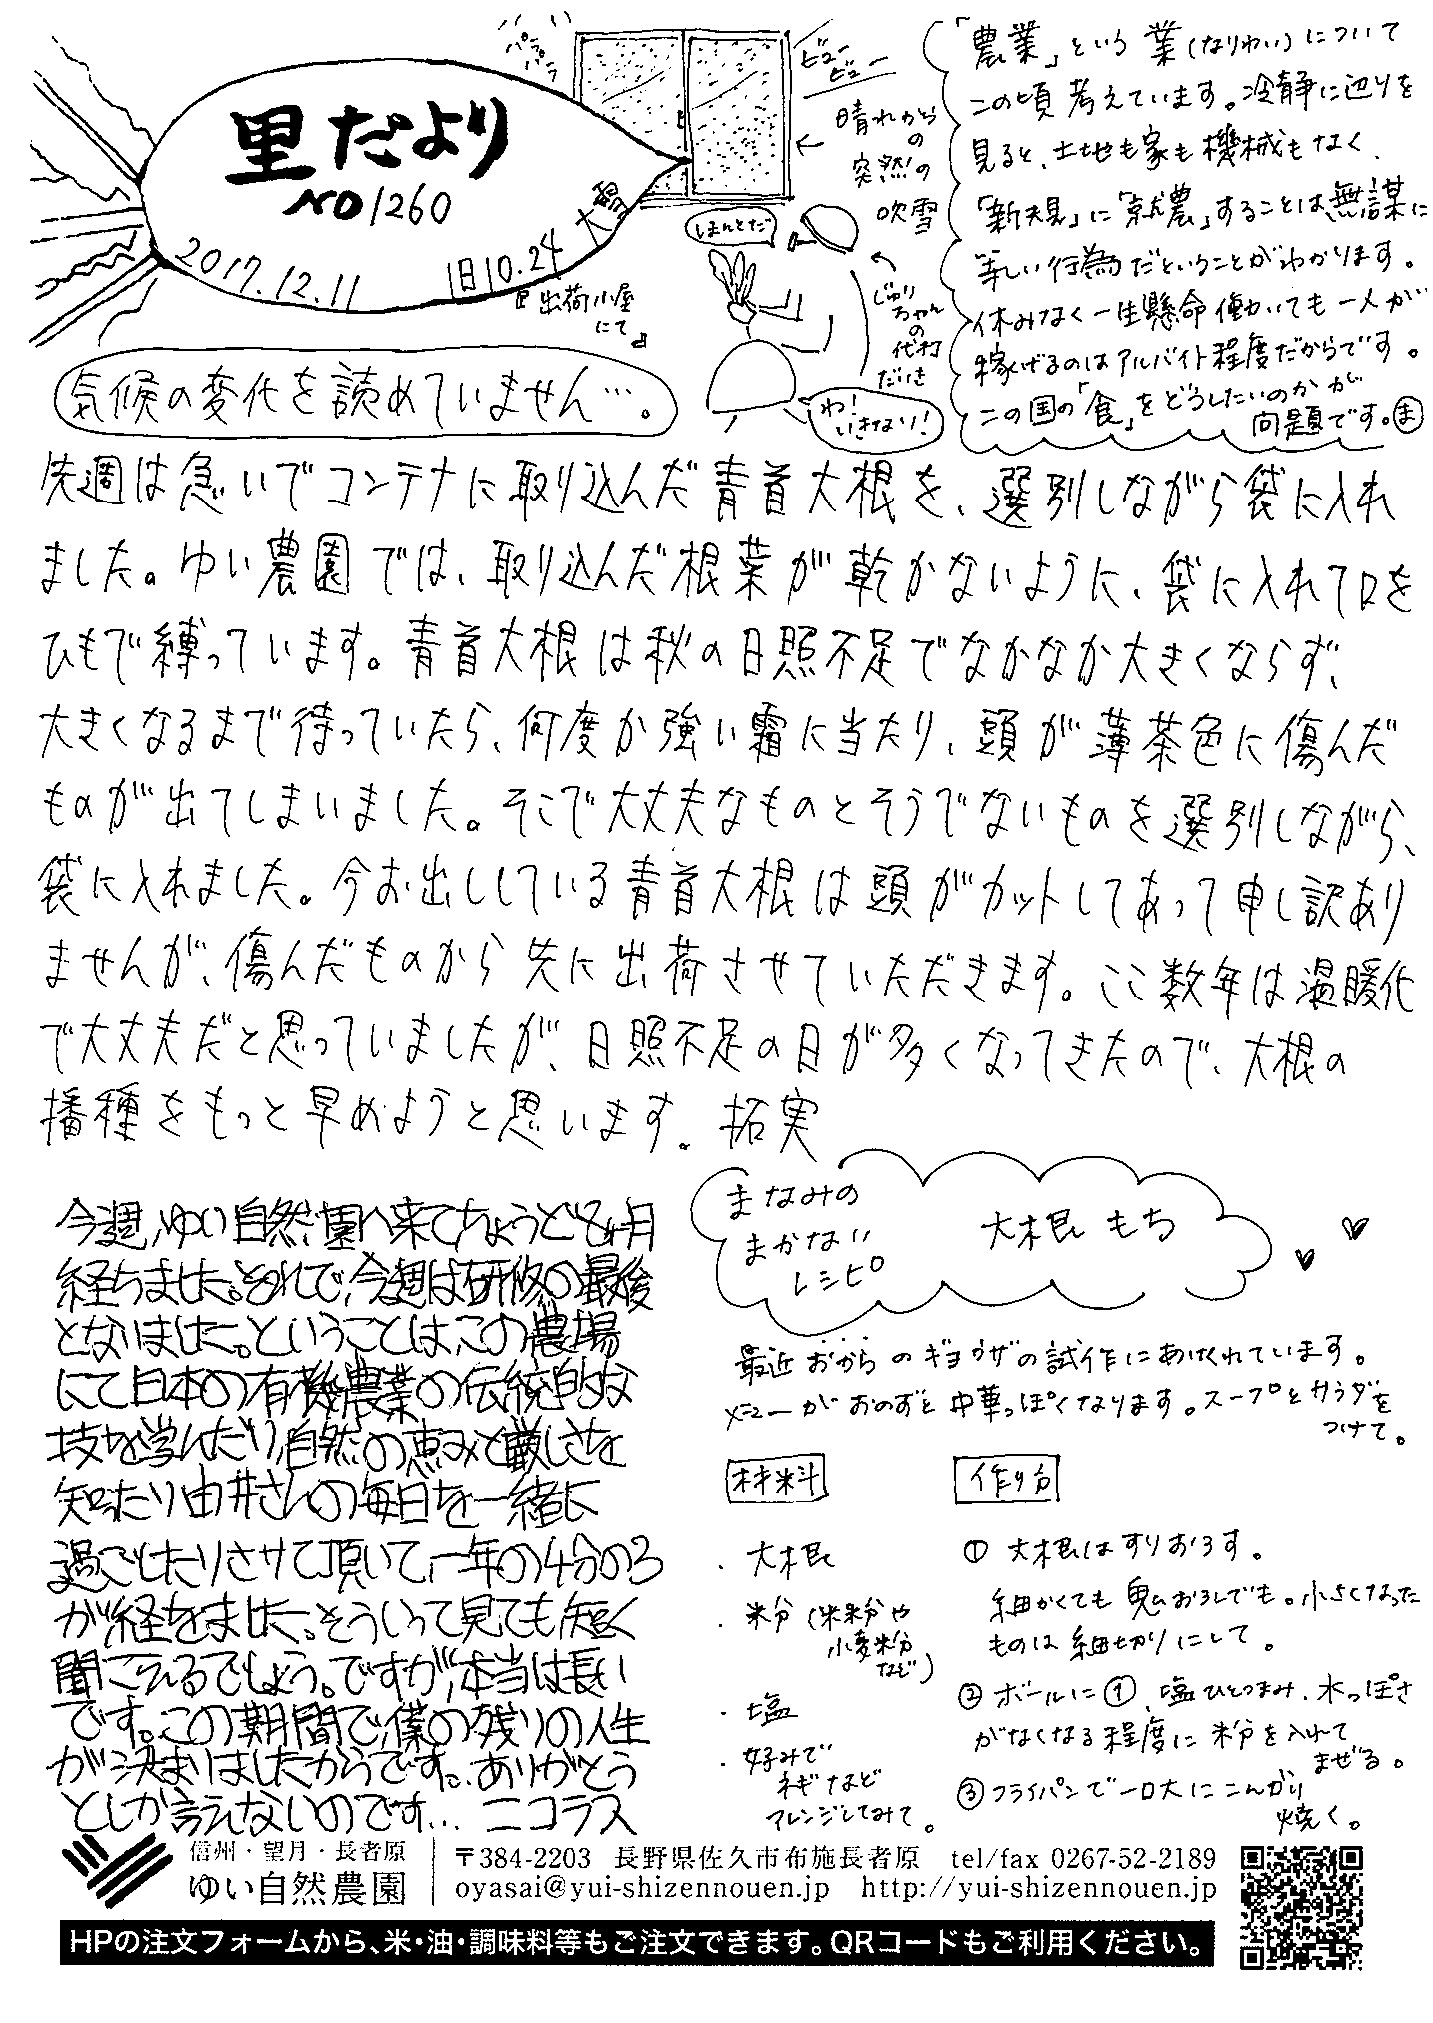 里だより
NO1260
2017.12.11
旧10.24 大雪
パラパラ
ビュービュー
晴れから
の
突然の
吹雪
『出荷小屋
にて』
ほんとだ
じゅり
ちゃん
の
代打
だいき
わ!
いきなり!
「農業」という業(なりわい)について
この頃考えています。冷静に辺りを
見ると、土地も家も機械もなく、
「新規」に「就農」することは無謀に
等しい行為だということがわかります。
休みなく一生懸命働いても一人が
稼げるのはアルバイト程度だからです。
この国の「食」をどうしたいのかが
問題です。ま
気候の変化を読めていません…。
先週は急いでコンテナに取り込んだ青首大根を、選別しながら袋に入れ
ました。ゆい農園では、取り込んだ根菜が乾かないように、袋に入れて口を
ひもで縛っています。青首大根は秋の日照不足でなかなか大きくならず、
大きくなるまで待っていたら、何度か強い霜に当たり、頭が薄茶色に傷んだ
ものが出てしまいました。そこで大丈夫なものとそうでないものを選別しながら、
袋に入れました。今お出ししている青首大根は頭がカットしてあって申し訳あり
ませんが、傷んだものから先に出荷させていただきます。ここ数年は温暖化
で大丈夫だと思っていましたが、日照不足の日が多くなってきたので、大根の
播種をもっと早めようと思います。拓実
今週、ゆい自然園へ来てちょうど8ヶ月
経ちました。それで、今週は研修の最後
となりました。ということは、この農場
にて日本の有機農業の伝統的な
技を学んだり自然の恵みと厳しさを
知ったり由井さんの毎日を一緒に
過ごしたりさせて頂いて、一年の4分の3
が経ちました。そういって見ても短く
聞こえるでしょう。ですが、本当は長い
です。この期間で僕の残りの人生
が決まりましたからです。ありがとう
としか言えないのです… ニコラス
まなみの
まかない
レシピ
大根もち
最近おからのギョウザの試作にあけくれています。
メニューがおのずと中華っぽくなります。スープとサラダを
つけて。
材料
・大根
・米分(米粉や
小麦粉
など)
・塩
・好みで
ネギなど
アレンジしてみて。
作り方
① 大根はすりおろす。
細かくても鬼おろしでも。小さくなった
ものは細切りにして。
② ボールに①、塩ひとつまみ、水っぽさ
がなくなる程度に粉を入れて
まぜる。
③ フライパンで一口大にこんがり
焼く。
信州・望月・長者原
ゆい自然農園
〒384-2203 長野県佐久市布施長者原 tel/fax 0267-52-2189
oyasai@yui-shizennouen.jp http://yui-shizennouen.jp
HPの注文フォームから、米・油・調味料等もご注文できます。QRコードもご利用ください。